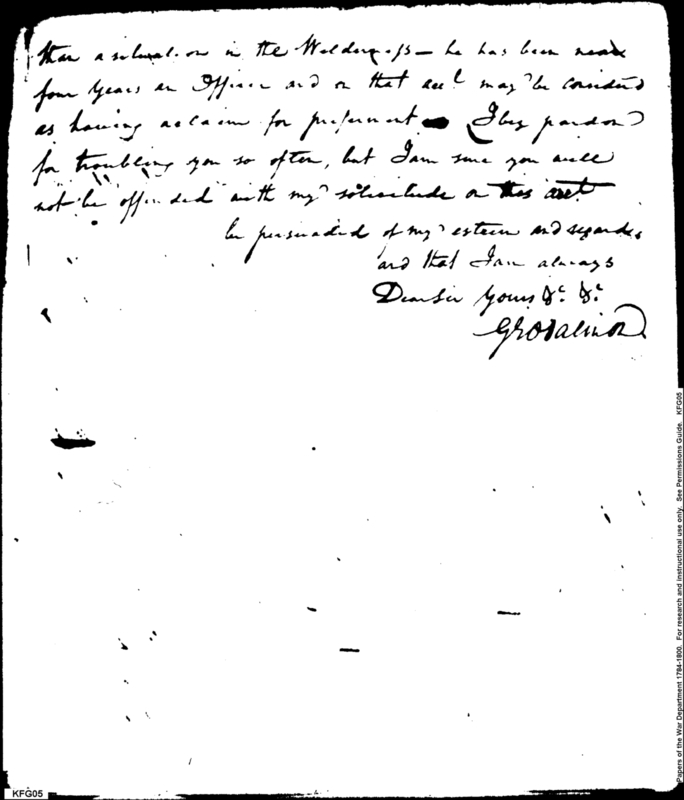 than a situation in the Wilderness — he has been near
four years an Officer and on that acct may be considerd
as having a claim for preferment I beg pardon
for troubling you so often, but I am sure you will
not be offended with my solicitude on this acct
be persuaded of my esteem and regards
and that I am always
Dear Sir Yours &c. &c.
Papers of the War Department 1784-1800. For research and instructional use only. See Permissions Guide. KFG05
KFG05